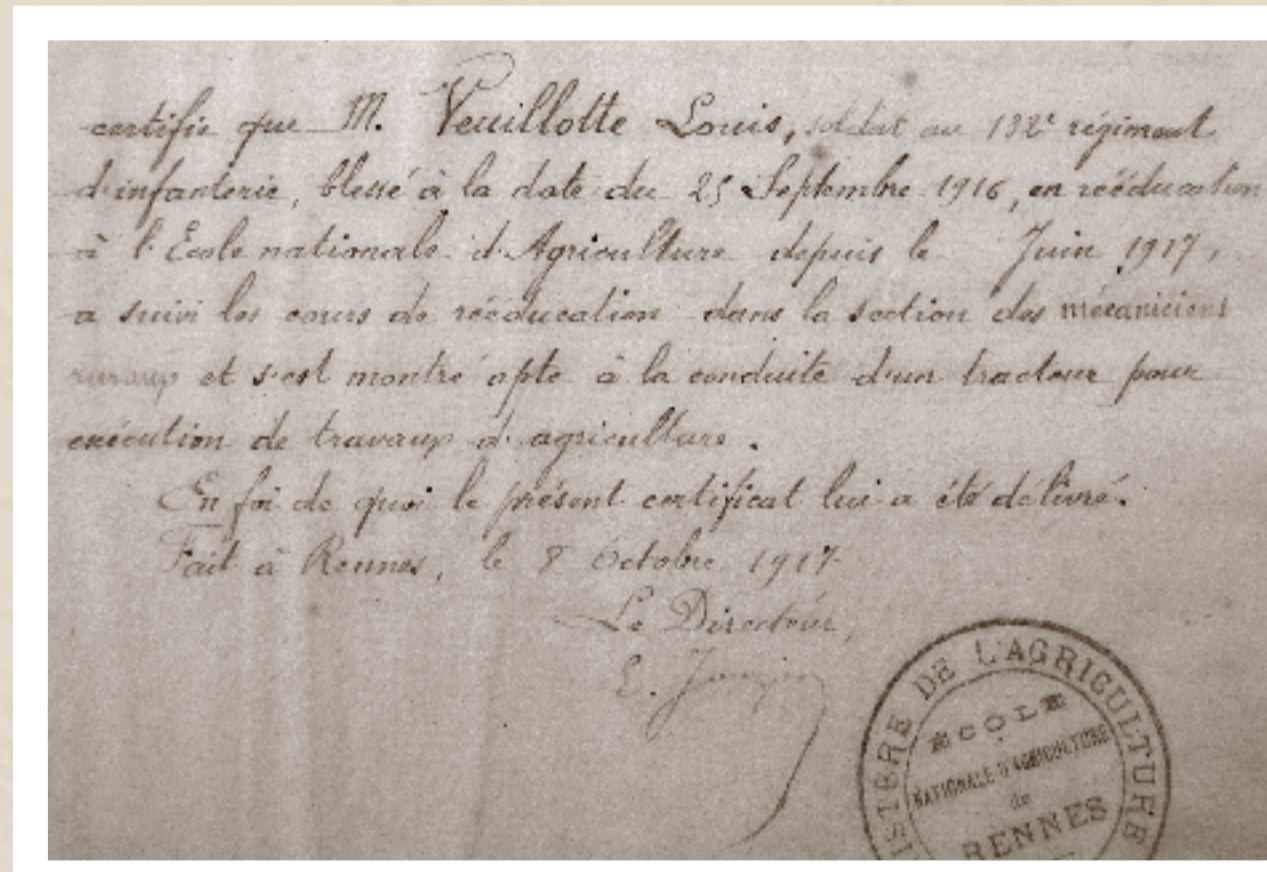 certifie que M. Veuillotte Louis, soldat au 132e régiment
d'infanterie, blessé à la date du 25 Septembre 1916, en rééducation
à l'Ecole nationale d'Agriculture depuis le Juin 1917,
a suivi les cours de rééducation dans la section des mécaniciens
ruraux et s'est montré apte à la conduite d'un tracteur pour
exécution de travaux d'agriculture.
En foi de quoi le présent certificat lui a été délivré.
Fait à Rennes, le 8 Octobre 1917
Le Directeur,
E.
ISTÈRE DE L'AGRICULTURE
ÉCOLE
NATIONALE D'AGRICULTURE
de
RENNES